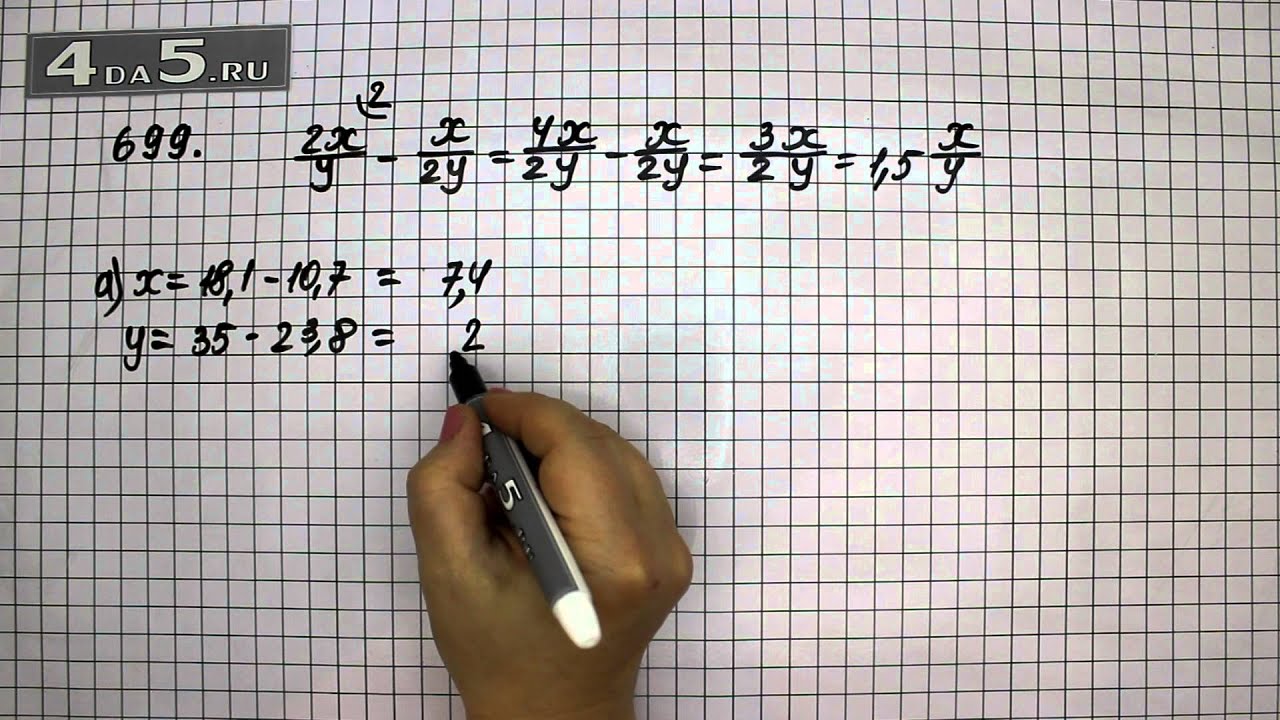 4DA5.RU
699. 2x/y - x/2y = 4x/2y - x/2y = 3x/2y = 1,5 x/y
2
а) x = 18,1 - 10,7 = 7,4
y = 35 - 23,8 = 2
5